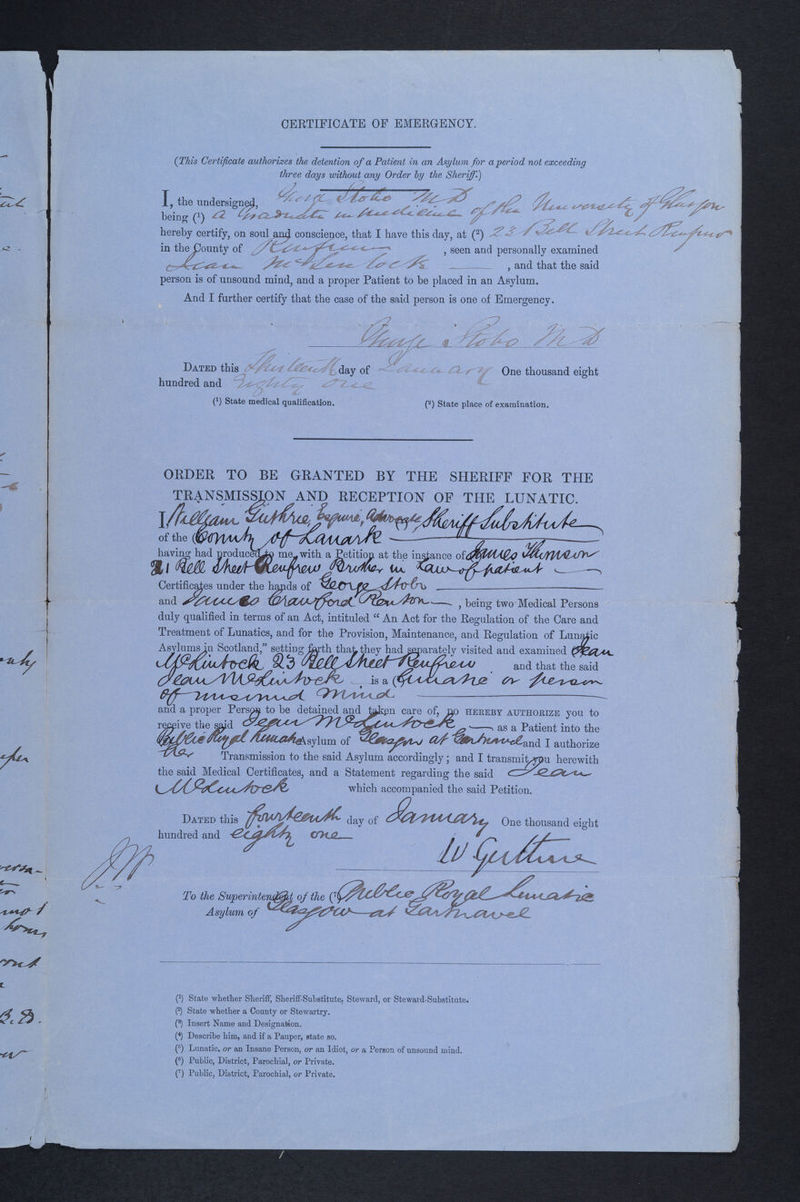 CERTIFICATE OF EMERGENCY.
(This Certificate authorizes the detention of a Patient in an Asylum for a period not exceeding
three days without any Order by the Sheriff.)
I, the undersigned, George Stobo M D
being (1) a Graduate in Medicine of the University of Glasgow
hereby certify, on soul and conscience, that I have this day, at (2) 23 Bell Street Renfrew
in the County of Renfrew , seen and personally examined
Jean McLintock , and that the said
person is of unsound mind, and a proper Patient to be placed in an Asylum.
And I further certify that the case of the said person is one of Emergency.
George Stobo M D
DATED this Thirteenth day of January One thousand eight
hundred and Eighty One
(1) State medical qualification. (2) State place of examination.
ORDER TO BE GRANTED BY THE SHERIFF FOR THE
TRANSMISSION AND RECEPTION OF THE LUNATIC.
I William Guthrie, Esquire, Advocate, Sheriff Substitute
of the County of Lanark
having had produced to me, with a Petition at the instance of James Thomson
21 Bell Street Renfrew Brother in Law of patient
Certificates under the hands of George Stobo
and James Crawford Renton , being two Medical Persons
duly qualified in terms of an Act, intituled “ An Act for the Regulation of the Care and
Treatment of Lunatics, and for the Provision, Maintenance, and Regulation of Lunatic
Asylums in Scotland,” setting forth that they had separately visited and examined Jean
McLintock 23 Bell Street Renfrew and that the said
Jean McLintock is a Lunatic or person
of unsound mind
and a proper Person to be detained and taken care of, DO HEREBY AUTHORIZE you to
receive the said Jean McLintock as a Patient into the
Public Royal Lunatic Asylum of Glasgow at Gartnavel and I authorize
Her Transmission to the said Asylum accordingly; and I transmit you herewith
the said Medical Certificates, and a Statement regarding the said Jean
McLintock which accompanied the said Petition.
DATED this fourteenth day of January One thousand eight
hundred and eighty one
W Guthrie
To the Superintendent of the (7) Public Royal Lunatic
Asylum of Glasgow at Gartnavel
(1) State whether Sheriff, Sheriff-Substitute, Steward, or Steward-Substitute.
(2) State whether a County or Stewartry.
(3) Insert Name and Designation.
(4) Describe him, and if a Pauper, state so.
(5) Lunatic, or an Insane Person, or an Idiot, or a Person of unsound mind.
(6) Public, District, Parochial, or Private.
(7) Public, District, Parochial, or Private.